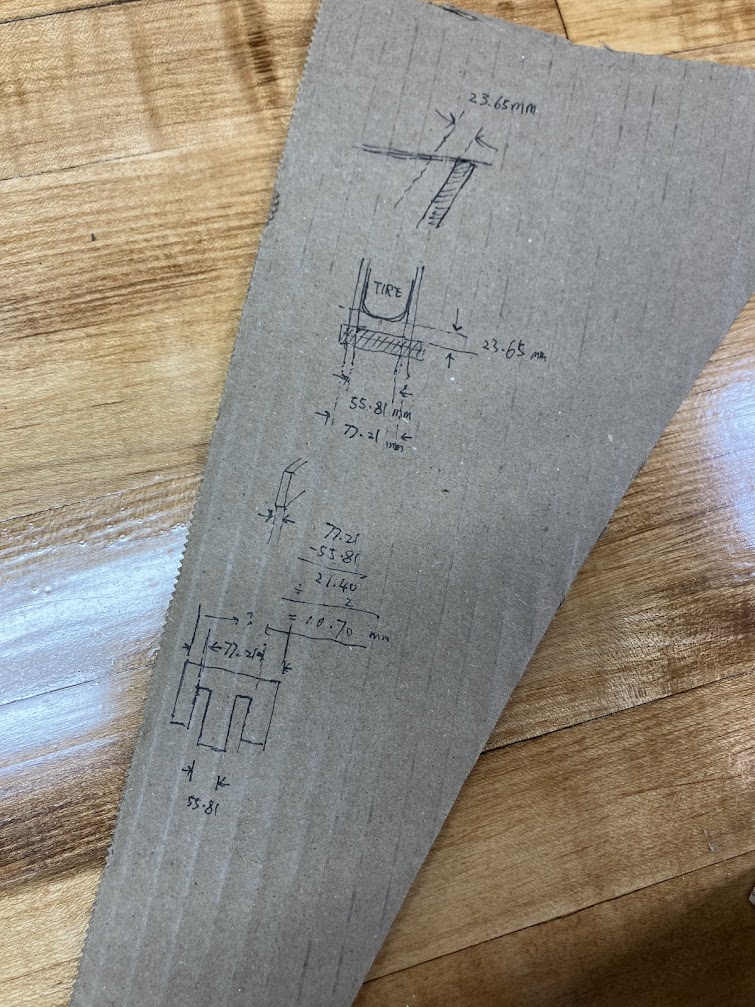 23.65mm
TIRE
23.65 mm
55.81 mm
77.21 mm
77.21
-55.81
21.40
÷ 2
= 10.70 mm
?
77.21
55.81